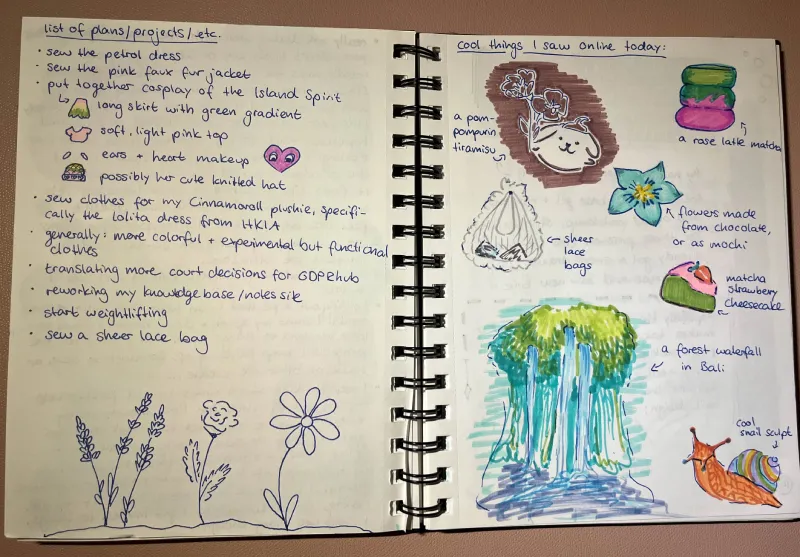 list of plans/projects/etc.
• sew the petrol dress
• sew the pink faux fur jacket
• put together cosplay of the Island Spirit
long skirt with green gradient
soft, light pink top
ears + heart makeup
possibly her cute knitted hat
• sew clothes for my Cinnamoroll plushie, specifi-
cally the lolita dress from HKIA
• generally: more colorful + experimental but functional
clothes
• translating more court decisions for GDPRhub
• reworking my knowledge base/notes site
• start weightlifting
• sew a sheer lace bag
cool things I saw online today:
a pom-
pompurin
tiramisu
a rose latte matcha
flowers made
from chocolate,
or as mochi
sheer
lace
bags
matcha
strawberry
cheesecake
a forest waterfall
in Bali
cool
snail sculpt